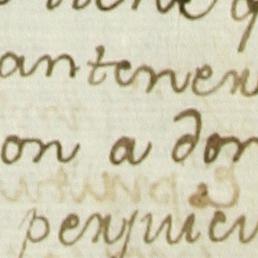 antener
on a dor
perjuici